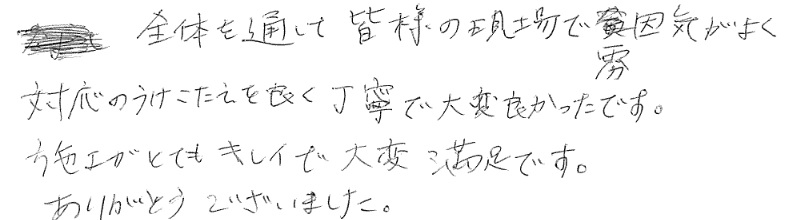 全体を通して皆様の現場で雰因気がよく
対応のうけこたえを良く丁寧で大変良かったです。
施工がとてもキレイで大変満足です。
ありがとうございました。